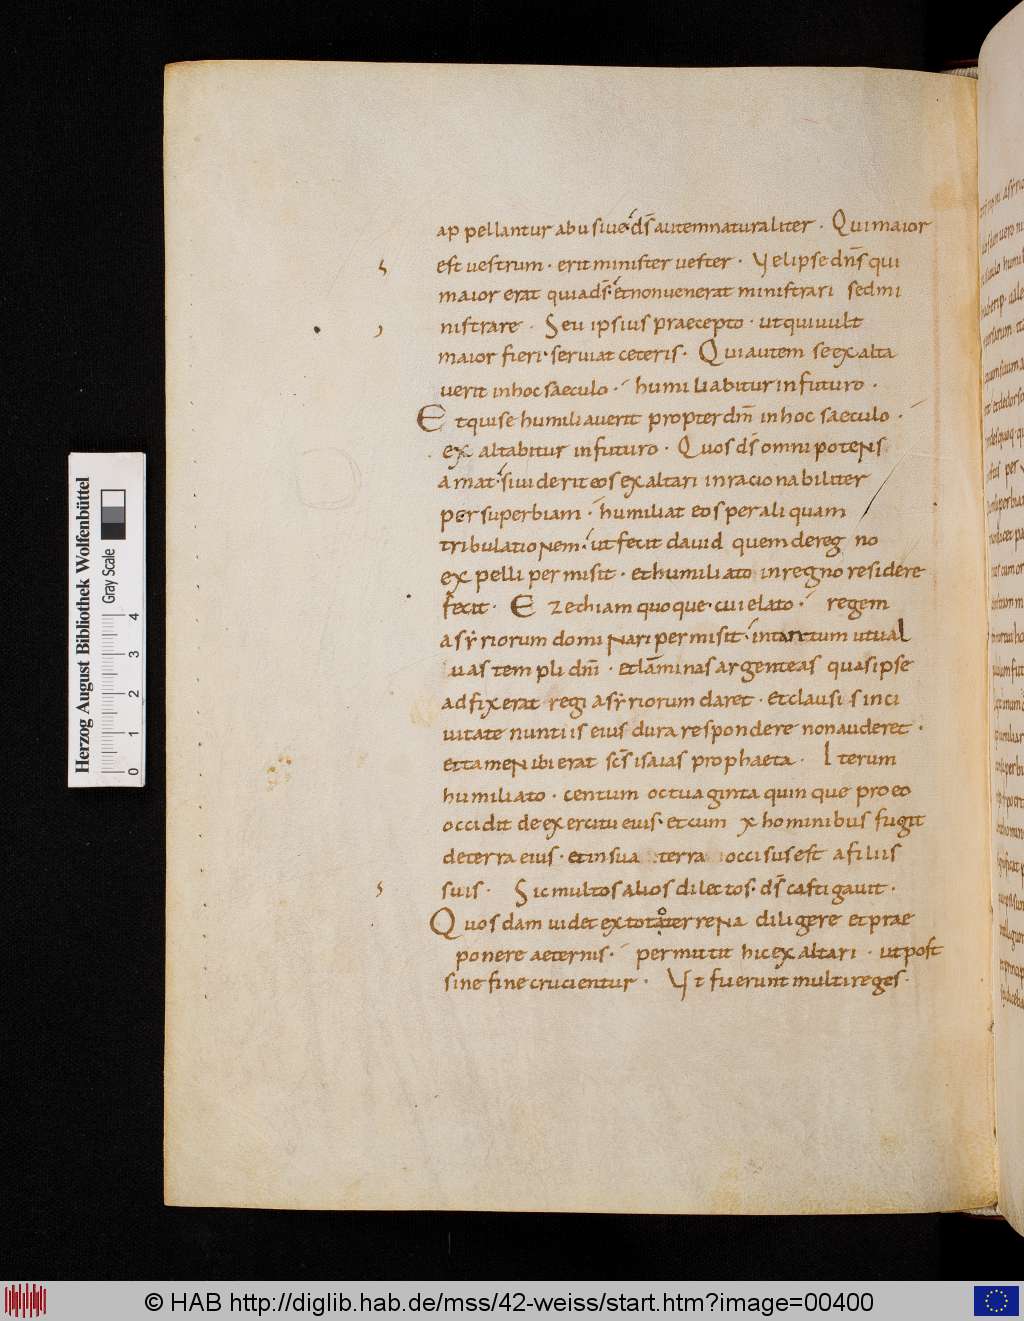 appellantur abusiue· ds̄ autem naturaliter · Qui maior
est uestrum · erit minister uester · Vel ipse dn̄s qui
maior erat quia ds̄· et non uenerat ministrari sed mi
nistrare · Seu ipsius praecepto · ut qui uult
maior fieri · seruiat ceteris · Qui autem se exalta
uerit in hoc saeculo · humiliabitur in futuro ·
Et qui se humiliauerit propter dm̄ in hoc saeculo ·
exaltabitur in futuro · Quos ds̄ omnipotens
amat · si uiderit eos exaltari inracionabiliter
per superbiam · humiliat eos per aliquam
tribulationem · ut fecit dauid quem de reg no
expelli permisit · et humiliato in regno residere
fecit · Ezechiam quoque · cui elato · regem
asyriorum dominari permisit · in tantum ut ual
uas templi dnī · et lāminas argenteas quas ipse
adfixerat regi asyriorum daret · Et clausis in ci
uitate nuntiis eius dura respondere non auderet ·
et tamen ibi erat scs̄ isaias prophaeta · Iterum
humiliato · centum octuaginta quinque pro eo
occidit de exercitu eius · et cum x hominibus fugit
de terra eius · et in sua terra occisus est a filiis
suis · Sic multos alios dilectos · ds̄ castigauit ·
Quosdam uidet ex toto terrena diligere et prae
ponere aeternis · permittit hic exaltari · ut post
sine fine crucientur · Vt fuerunt multi reges ·
Herzog August Bibliothek Wolfenbüttel
Gray Scale
0 1 2 3 4
© HAB http://diglib.hab.de/mss/42-weiss/start.htm?image=00400